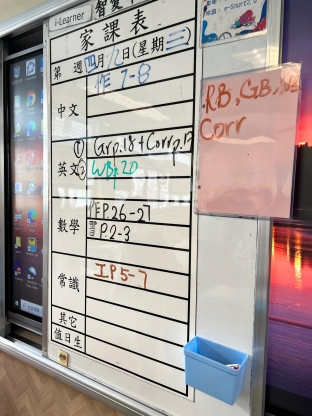 i-Learner
智愛
家課表
第 週 四月12日(星期三)
中文 作 7-8
英文 ① Gr p.18 + Corr p.5
② WB p20
數學 作 P.26-27
P.2-3
常識 IP5-7
其它
值日生
e-Smart2.0
RB, GB,
Corr